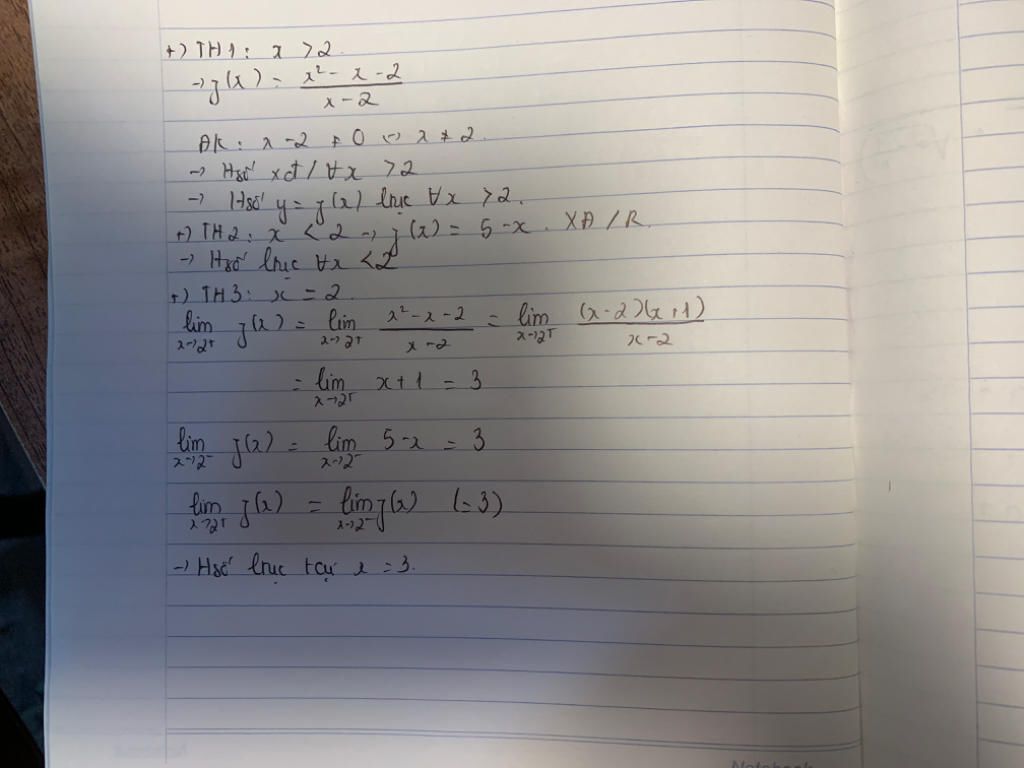 +) TH1: x > 2.
→ f(x) = \frac{x² - x - 2}{x - 2}
ĐK: x - 2 ≠ 0 ⇔ x ≠ 2.
→ Hsố xđ / ∀x > 2
→ Hsố y = f(x) ltục ∀x > 2.
+) TH2: x < 2 → f(x) = 5 - x. XĐ / R.
→ Hsố ltục ∀x < 2
+) TH3: x = 2.
\lim_{x→2⁺} f(x) = \lim_{x→2⁺} \frac{x² - x - 2}{x - 2} = \lim_{x→2⁺} \frac{(x - 2)(x + 1)}{x - 2}
= \lim_{x→2⁺} x + 1 = 3
\lim_{x→2⁻} f(x) = \lim_{x→2⁻} 5 - x = 3
\lim_{x→2⁺} f(x) = \lim_{x→2⁻} f(x) (= 3)
→ Hsố ltục tại x = 3.